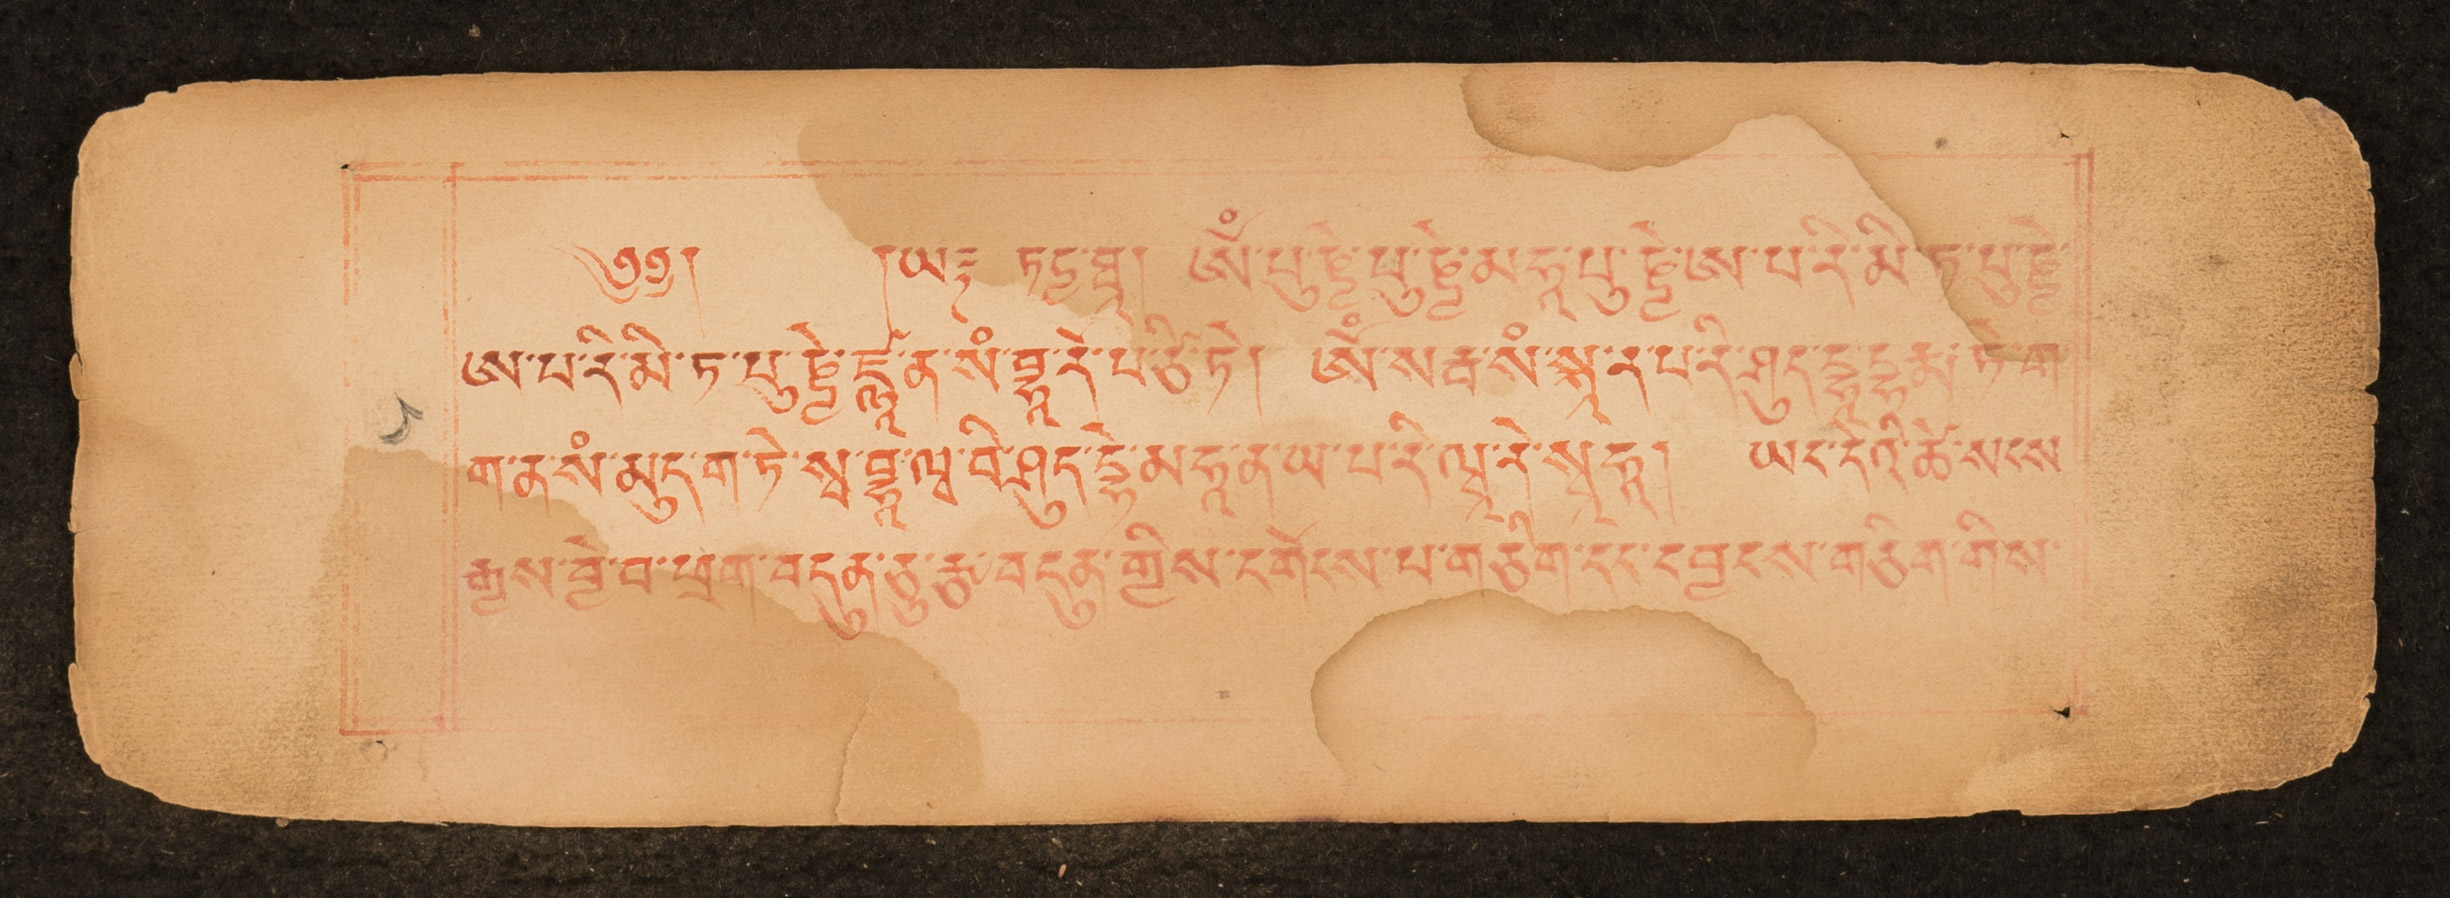 ༄༅། །ཡ་ ཏདྱ་ཐཱ། ཨོཾ་པུ་ཎྱེ་པུ་ཎྱེ་མ་ཧཱ་པུ་ཎྱེ་ཨ་པ་རི་མི་ཏ་པུ་ཎྱེ་
ཨ་པ་རི་མི་ཏ་པུ་ཎྱེ་ཛྙཱ་ན་སཾ་བྷཱ་རེ་པ་ཙི་ཏེ། ཨོཾ་སརྦ་སཾ་སྐཱ་ར་པ་རི་ཤུད་དྷཱ་དྷརྨ་ཏེ་ག
ག་ན་སཾ་མུད་ག་ཏེ་སྭ་བྷཱ་ཝ་བི་ཤུད་དྷེ་མ་ཧཱ་ན་ཡ་པ་རི་ཝཱ་རེ་སྭཱ་ཧཱ། ཡང་དེའི་ཚེ་སངས
རྒྱས་བྱེ་བ་ཕྲག་བདུན་ཅུ་རྩ་བདུན་གྱིས་དགོངས་པ་གཅིག་དང་དབྱངས་གཅིག་གིས་